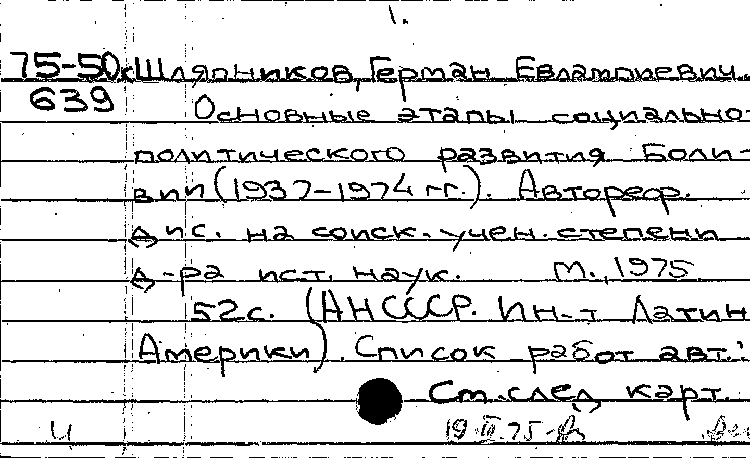 1.
75-50к Шляпников, Герман Евлампиевич.
639 Основные этапы социально-
политического развития Боли-
вии (1937-1974 гг.). Автореф.
дис. на соиск. учен. степени
д-ра ист. наук. М., 1975
52с. (АН СССР. Ин-т Латин.
Америки). Список работ авт.:
См. след. карт.
Ч 19 III 75